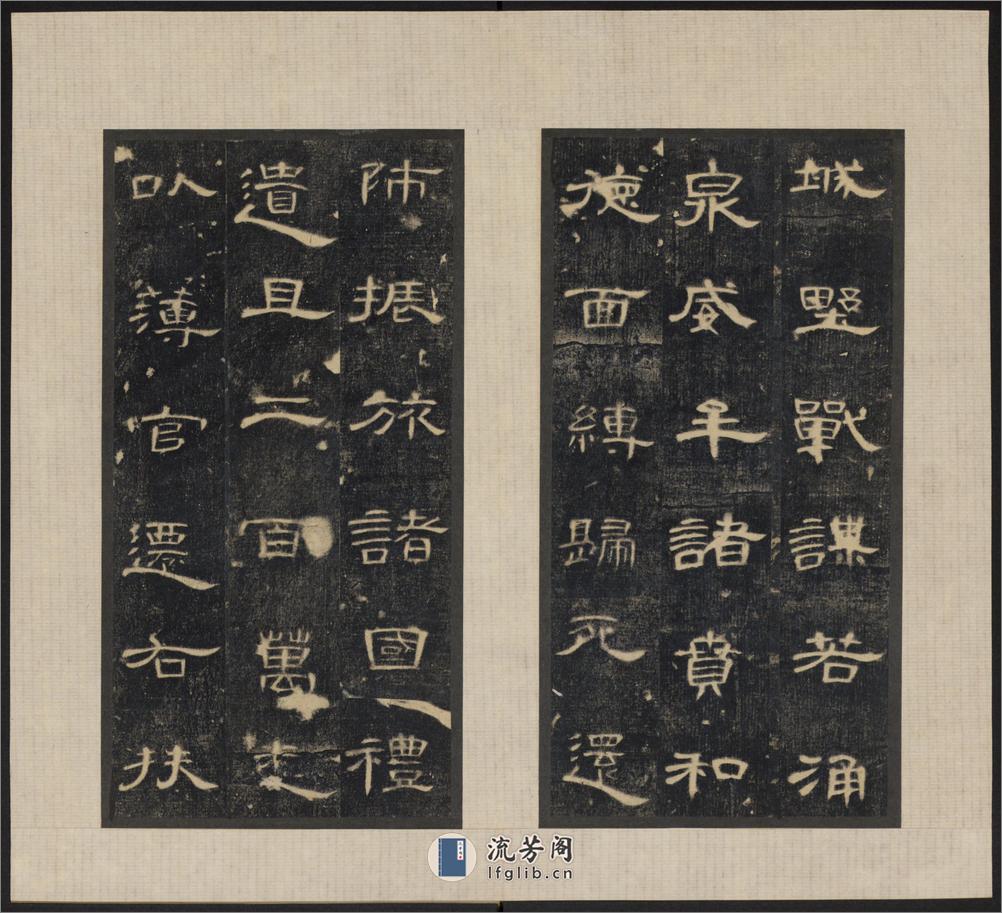 城墅戰謀若涌
泉威牟諸賁和
德面縛歸死還
師振旅諸國禮
遺且二百萬悉
以薄官遷右扶
流芳阁
lfglib.cn